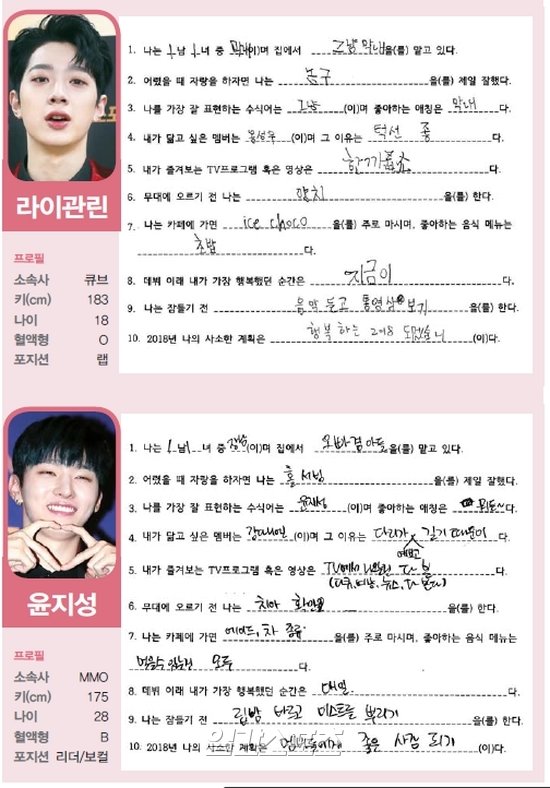 라이관린
프로필
소속사 큐브
키(cm) 183
나이 18
혈액형 O
포지션 랩
1. 나는 1남 1녀 중 막내(이)며 집에서 막내을(를) 맡고 있다.
2. 어렸을 때 자랑을 하자면 나는 농구을(를) 제일 잘했다.
3. 나를 가장 잘 표현하는 수식어는 (이)며 좋아하는 애칭은 막내다.
4. 내가 닮고 싶은 멤버는 옹성우(이)며 그 이유는 턱선 좋다.
5. 내가 즐겨보는 TV프로그램 혹은 영상은 다.
6. 무대에 오르기 전 나는 양치을(를) 한다.
7. 나는 카페에 가면 ice choco을(를) 주로 마시며, 좋아하는 음식 메뉴는
초밥다.
8. 데뷔 이래 내가 가장 행복했던 순간은 지금이다.
9. 나는 잠들기 전 음악 듣고 동영상 보기을(를) 한다.
10. 2018년 나의 사소한 계획은 행복하는 2018 (이)다.
윤지성
프로필
소속사 MMO
키(cm) 175
나이 28
혈액형 B
포지션 리더/보컬
1. 나는 1남 녀 중 (이)며 집에서 오빠겸아들을(를) 맡고 있다.
2. 어렸을 때 자랑을 하자면 나는 을(를) 제일 잘했다.
3. 나를 가장 잘 표현하는 수식어는 윤지성(이)며 좋아하는 애칭은 다.
4. 내가 닮고 싶은 멤버는 강다니엘(이)며 그 이유는 다리가 예쁘고 길기 때문이다.
5. 내가 즐겨보는 TV프로그램 혹은 영상은 TV에 다 봄다.
(다큐, 예능, 뉴스, 다 본다)
6. 무대에 오르기 전 나는 치아 확인을을(를) 한다.
7. 나는 카페에 가면 에이드, 차 종류을(를) 주로 마시며, 좋아하는 음식 메뉴는
모두다.
8. 데뷔 이래 내가 가장 행복했던 순간은 매일다.
9. 나는 잠들기 전 립밤 바르고 미스트를 뿌리기을(를) 한다.
10. 2018년 나의 사소한 계획은 멤버들에게 좋은 사람 되기(이)다.
일간스포츠